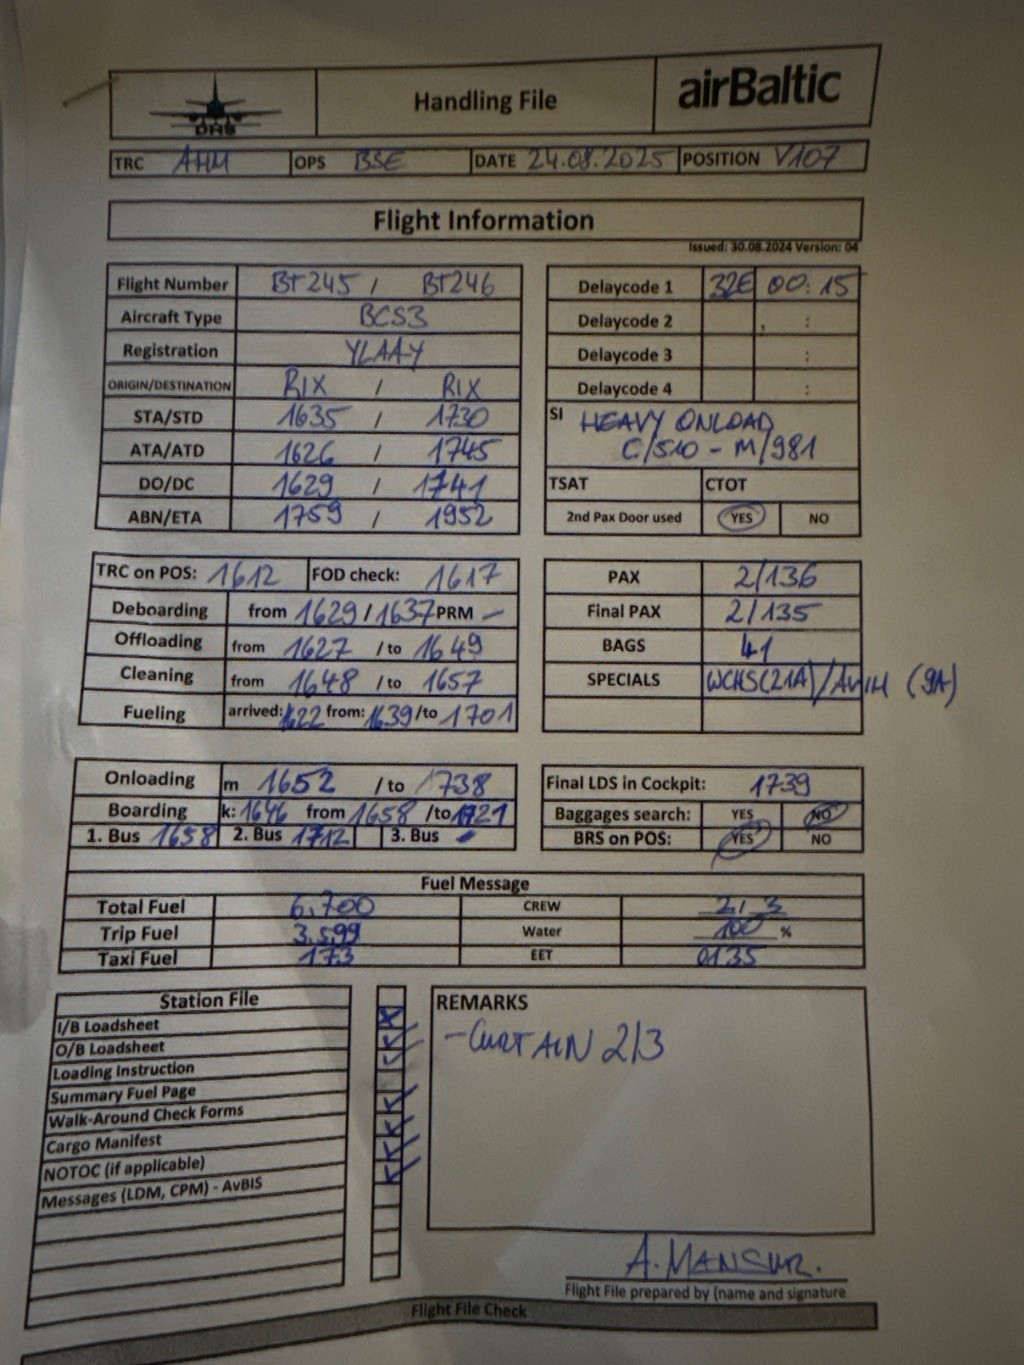 DHS Handling File airBaltic
TRC AHM OPS BSE DATE 24.08.2025 POSITION V107
Flight Information
Issued: 30.08.2024 Version: 04
Flight Number BT245 / BT246
Aircraft Type BCS3
Registration YLAAY
ORIGIN/DESTINATION RIX / RIX
STA/STD 1635 / 1730
ATA/ATD 1626 / 1745
DO/DC 1629 / 1741
ABN/ETA 1759 / 1952
Delaycode 1 32E 00:15
Delaycode 2 :
Delaycode 3 :
Delaycode 4 :
SI HEAVY ONLOAD
C/510 - M/981
TSAT CTOT
2nd Pax Door used YES NO
TRC on POS: 1612 FOD check: 1617
Deboarding from 1629/1637 PRM -
Offloading from 1627 /to 1649
Cleaning from 1648 /to 1657
Fueling arrived: 1622 from: 1639 /to 1701
PAX 2/136
Final PAX 2/135
BAGS 41
SPECIALS WCHS(21A)/AVIH (9A)
Onloading m 1652 /to 1738
Boarding k: 1646 from 1658 /to 1721
1. Bus 1658 2. Bus 1712 3. Bus -
Final LDS in Cockpit: 1739
Baggages search: YES NO
BRS on POS: YES NO
Fuel Message
Total Fuel 6.700 CREW 2/3
Trip Fuel 3.599 Water 100 %
Taxi Fuel 173 EET 0135
Station File
I/B Loadsheet
O/B Loadsheet
Loading Instruction
Summary Fuel Page
Walk-Around Check Forms
Cargo Manifest
NOTOC (if applicable)
Messages (LDM, CPM) - AvBIS
REMARKS
- CURTAIN 2/3
A. MANSUR.
Flight File prepared by (name and signature
Flight File Check